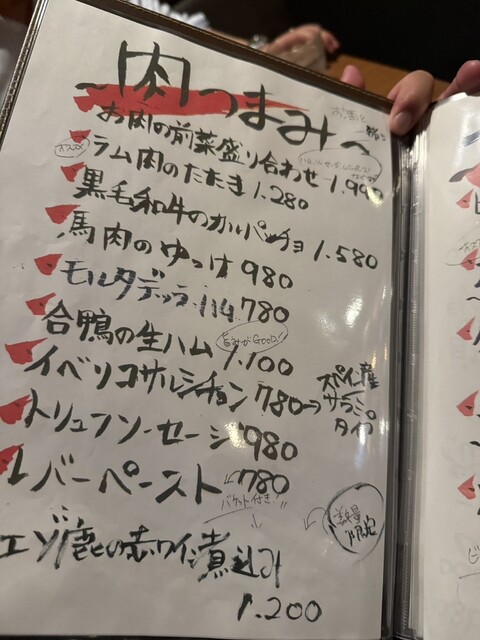 ~肉つまみ~
お酒と
お肉の前菜盛り合わせ 1.990
オススメ
ラム肉のたたき 1.280
黒毛和牛のカルパッチョ 1.580
馬肉のゆっけ 980
モルタデッラハム 780
合鴨の生ハム 1.100
旨みがGOOD!!
イベリコサルシチョン 780→スペイン産サラミタイプ
トリュフソーセージ 980
レバーペースト 780
バケット付き!!
数量限定
エゾ鹿の赤ワイン煮込み
1.200